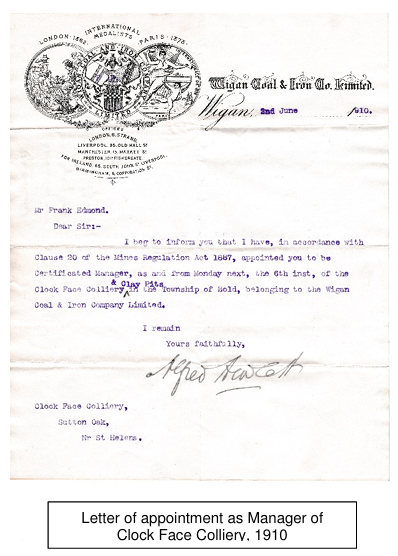 INTERNATIONAL
MEDALISTS
LONDON · 1862
PARIS · 1878
LIMITED
Wigan Coal & Iron Co. Limited.
Wigan, 2nd June 1910.
OFFICES
LONDON, 6, STRAND,
LIVERPOOL, 25, OLD HALL ST
MANCHESTER, 15, MARKET ST
PRESTON, 101 FISHERGATE.
FOR IRELAND, 65, SOUTH JOHN ST LIVERPOOL,
BIRMINGHAM, 8, CORPORATION ST.
Mr Frank Edmond.
Dear Sir:-
I beg to inform you that I have, in accordance with
Clause 20 of the Mines Regulation Act 1887, appointed you to be
Certificated Manager, as and from Monday next, the 6th inst, of the
& Clay Pits
Clock Face Colliery in the Township of Bold, belonging to the Wigan
Coal & Iron Company Limited.
I remain
Yours faithfully,
Alfred Hewlett
Clock Face Colliery,
Sutton Oak,
Nr St Helens.
Letter of appointment as Manager of
Clock Face Colliery, 1910